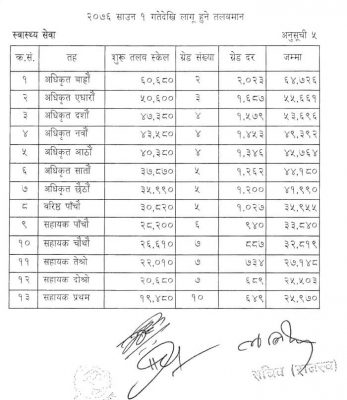 २०७६ साउन १ गतेदेखि लागू हुने तलबमान
स्वास्थ्य सेवा अनुसूची ५
क्र.सं. तह शुरू तलब स्केल ग्रेड संख्या ग्रेड दर जम्मा
१ अधिकृत बाह्रौं ६०,६८० २ २,०२३ ६४,७२६
२ अधिकृत एघारौं ५०,६०० ३ १,६८७ ५५,६६१
३ अधिकृत दशौं ४७,३८० ४ १,५७९ ५३,६९६
४ अधिकृत नवौं ४३,५८० ४ १,४५३ ४९,३९२
५ अधिकृत आठौं ४०,३८० ४ १,३४६ ४५,७६४
६ अधिकृत सातौं ३७,८७० ५ १,२६२ ४४,१८०
७ अधिकृत छैठौं ३५,९९० ५ १,२०० ४१,९९०
८ बरिष्ठ पाँचौं ३०,८२० ५ १,०२७ ३५,९५५
९ सहायक पाँचौं २८,२०० ६ ९४० ३३,८४०
१० सहायक चौथौं २६,६१० ७ ८८७ ३२,८१९
११ सहायक तेश्रो २२,०१० ७ ७३४ २७,१४८
१२ सहायक दोश्रो २०,६८० ७ ६८९ २५,५०३
१३ सहायक प्रथम १९,४८० १० ६४९ २५,९७०
सचिव (राजस्व)